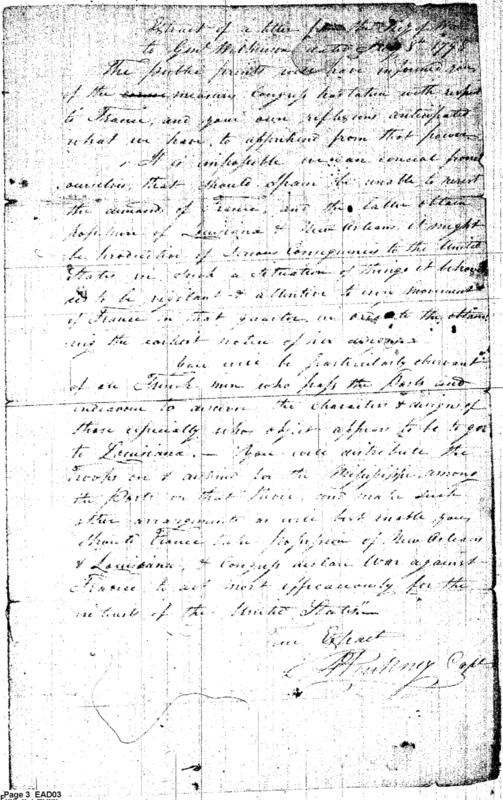 Extract of a letter from the Sec of
to Genl Wilkinson dated Aug 3 1798
The public prints will have informed you
of the measures Congress has taken with respect
to France, and your own reflexions anticipated
what we have, to apprehend from that power
It is impossible we can conceal from
ourselves, that should Spain be unable to resist
the demands of France, and the latter obtain
possession of Louisiana & New Orleans it might
be productive of Serious Consequences to the United
States in such a situation of things it behoves
us to be vigilant & attentive to every movement
of France in that quarter, in order to the obtain
ing the earliest notice of her
You will be particularly observant
of all French men who pass the Posts and
endeavour to discover the characters & designs of
those especially whose object appears to be to go
to Louisiana. — You will distribute the
Troops on & destined for the Mississippi among
the Posts on that River, and make such
other arrangements as will best enable you
should France take Possession of New Orleans
& Louisiana, & Congress declare War against
France to act most efficaciously for the
interests of the United States"
True Extract
Capt
Page 3 EAD03